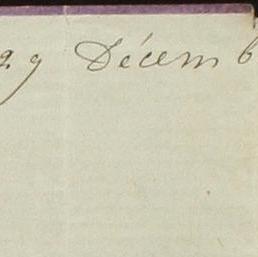 29 Décemb